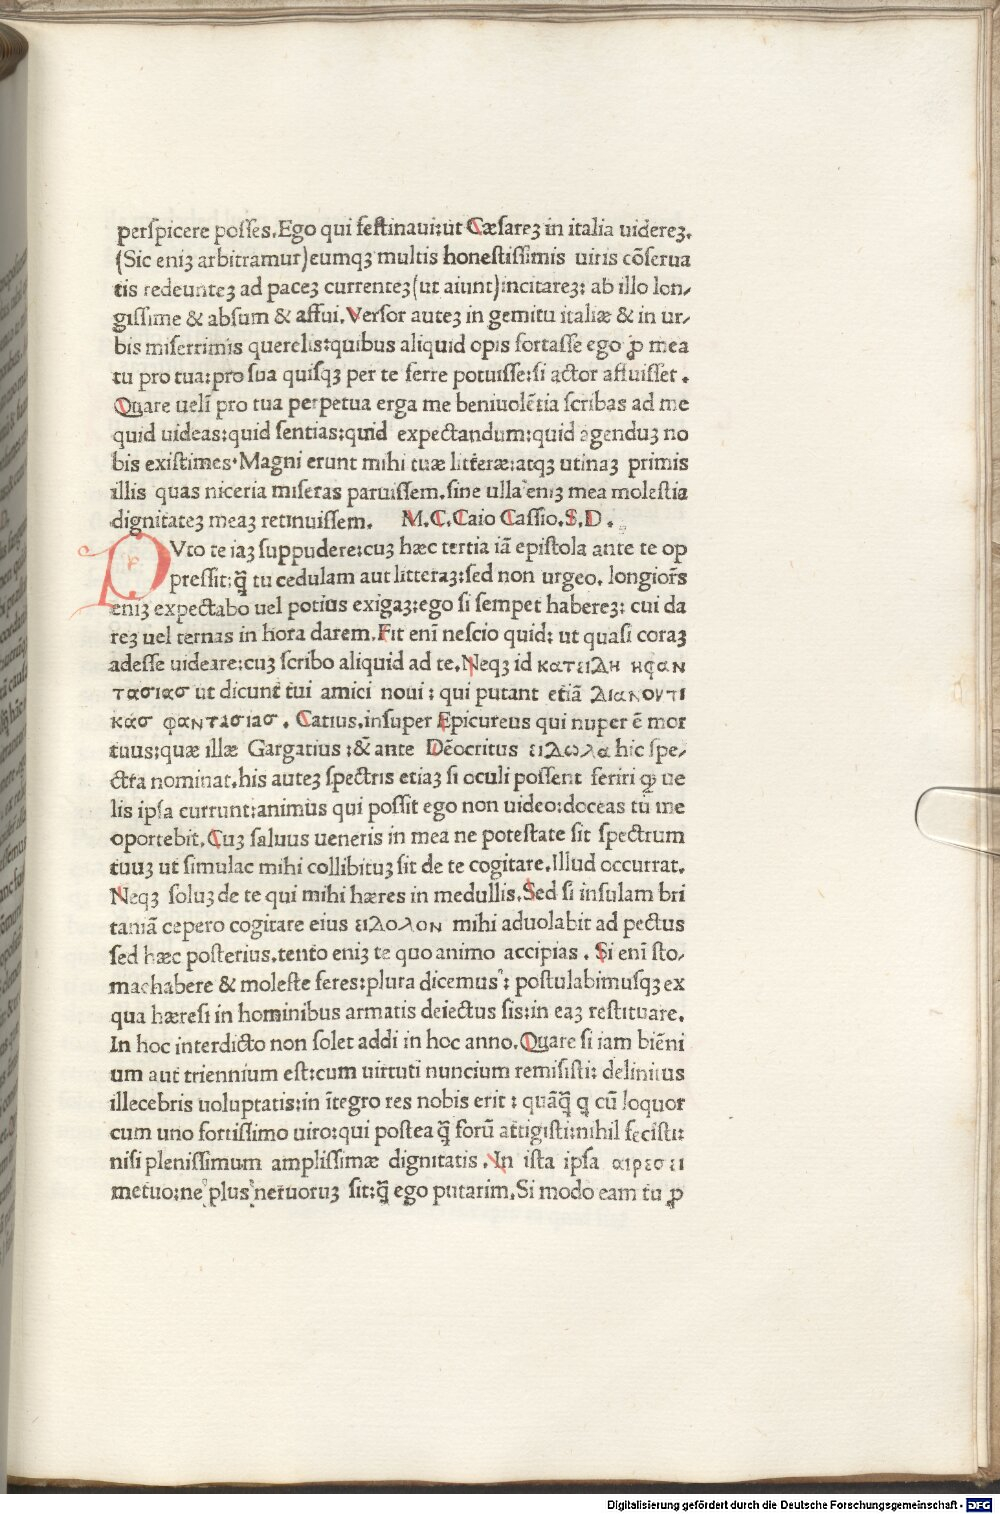 perſpicere poſſes.Ego qui feſtinaui:ut Cæſareꝫ in italia uidereꝫ.
(Sic eniꝫ arbitramur)eumqꝫ multis honeſtiſſimis uiris cõſerua
tis redeunteꝫ ad paceꝫ currenteꝫ(ut aiunt)incitareꝫ: ab illo lon⸗
giſſime & abſum & affui.Verſor auteꝫ in gemitu italiæ & in ur⸗
bis miſerrimis querelis:quibus aliquid opis fortaſſe ego ꝓ mea
tu pro tua:pro ſua quiſqꝫ per te ferre potuiſſe:ſi actor affuiſſet .
Quare uelī pro tua perpetua erga me beniuolẽtia ſcribas ad me
quid uideas:quid ſentias:quid expectandum:quid agenduꝫ no
bis exiſtimes.Magni erunt mihi tuæ litteræ:atqꝫ utinaꝫ primis
illis quas niceria miſeras paruiſſem.ſine ulla eniꝫ mea moleſtia
dignitateꝫ meaꝫ retinuiſſem. M.C.Caio Caſſio.S.D.
PVto te iaꝫ ſuppudere:cuꝫ hæc tertia iã epiſtola ante te op
preſſit:q̃ tu cedulam aut litteraꝫ:ſed non urgeo. longior̃s
eniꝫ expectabo uel potius exigaꝫ:ego ſi ſempet habereꝫ: cui da
reꝫ uel ternas in hora darem.Fit enī neſcio quid: ut quaſi coraꝫ
adeſſe uideare:cuꝫ ſcribo aliquid ad te.Neqꝫ id κατειΔη ηφαν
τασιασ ut dicunt tui amici noui : qui putant etiã Διανουτι
κασ φαντασιασ . Catius.inſuper Epicureus qui nuper ē mor
tuus:quæ illæ Gargatius :& ante Dẽocritus ειΔωλα hic ſpe⸗
ctra nominat.his auteꝫ ſpectris etiaꝫ ſi oculi poſſent feriri ꝙ ue
lis ipſa currunt:animus qui poſſit ego non uideo:doceas tu me
oportebit.Cuꝫ ſaluus ueneris in mea ne poteſtate ſit ſpectrum
tuuꝫ ut ſimulac mihi collibituꝫ ſit de te cogitare.Illud occurrat.
Neqꝫ ſoluꝫ de te qui mihi hæres in medullis.Sed ſi inſulam bri
taniã cepero cogitare eius ειΔολον mihi aduolabit ad pectus
ſed hæc poſterius.tento eniꝫ te quo animo accipias . Si enī ſto⸗
machabere & moleſte feres:plura dicemus : poſtulabimuſqꝫ ex
qua hæreſi in hominibus armatis deiectus ſis:in eaꝫ reſtituare.
In hoc interdicto non ſolet addi in hoc anno.Quare ſi iam biẽni
um aut triennium eſt:cum uirtuti nuncium remiſiſti: delinitus
illecebris uoluptatis:in ītegro res nobis erit : quãq̃ q cũ loquor
cum uno fortiſſimo uiro:qui poſtea q̃ forũ attigiſti:nihil feciſti:
niſi pleniſſimum ampliſſimæ dignitatis .In iſta ipſa αιρεσει
metuo:ne plus neruoruꝫ ſit:q̃ ego putarim.Si modo eam tu ꝓ
Digitalisierung gefördert durch die Deutsche Forschungsgemeinschaft - DFG